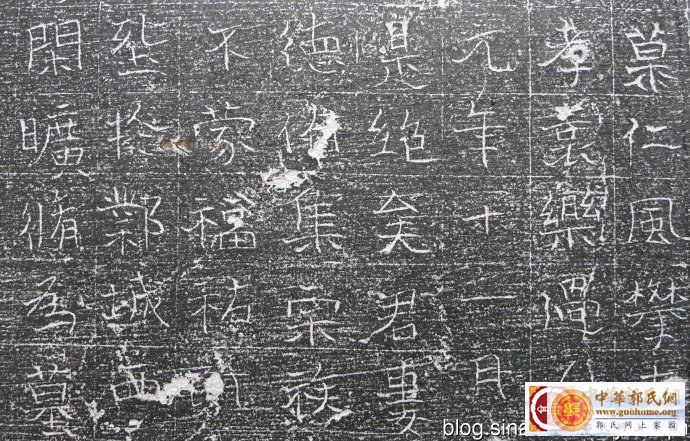 慕仁風攀
孝
元年十一月
是绝矣君妻
德集宗
不蒙福祐
塋於鄴城西
閑曠脩為墓
中華郭氏網
www.guohome.org
郭氏网上家園
blog.sina